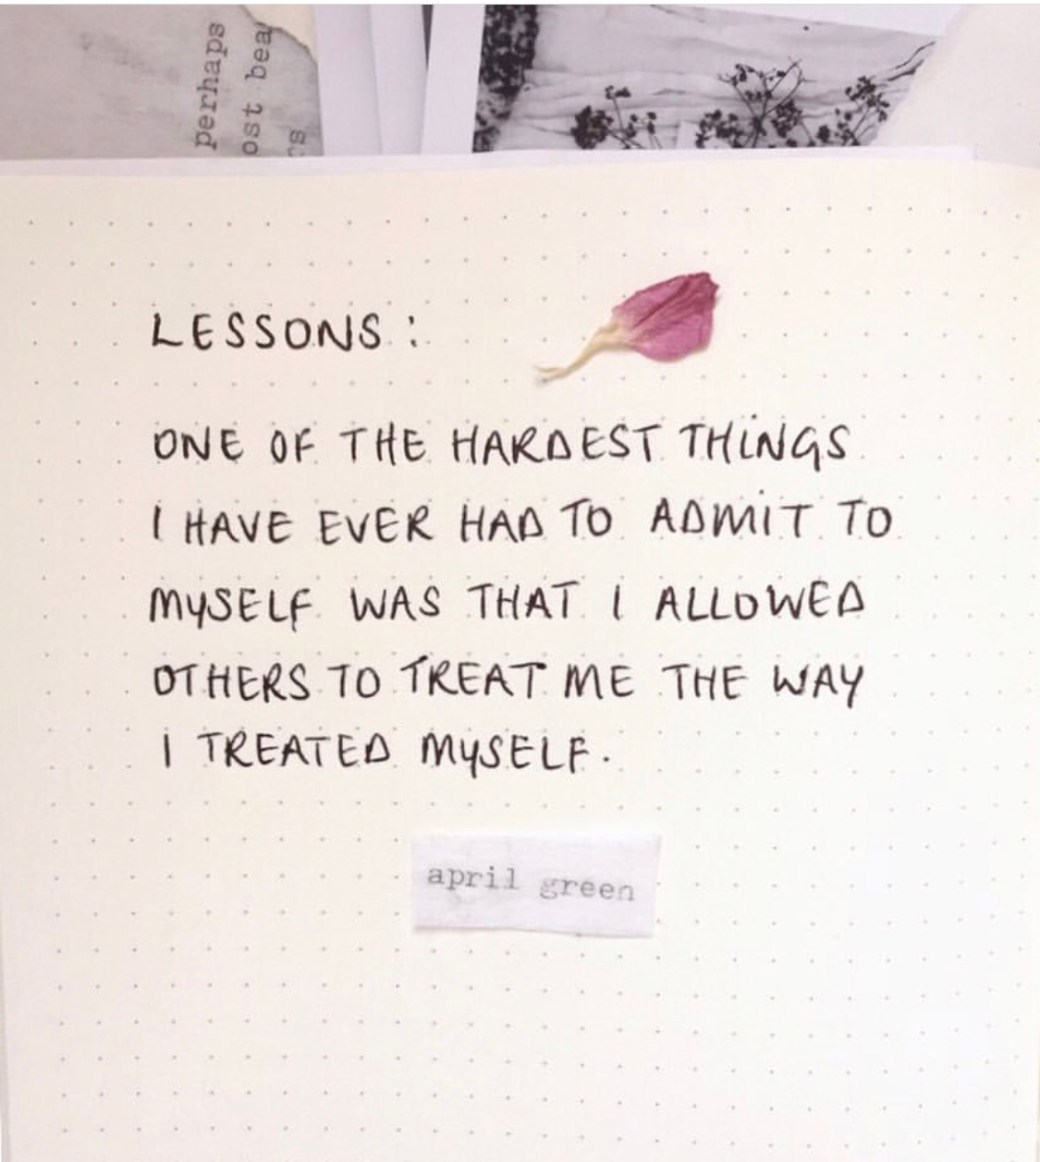 perhaps
LESSONS:
ONE OF THE HARDEST THINGS
I HAVE EVER HAD TO ADMIT TO
MYSELF WAS THAT I ALLOWED
OTHERS TO TREAT ME THE WAY
I TREATED MYSELF.
april green